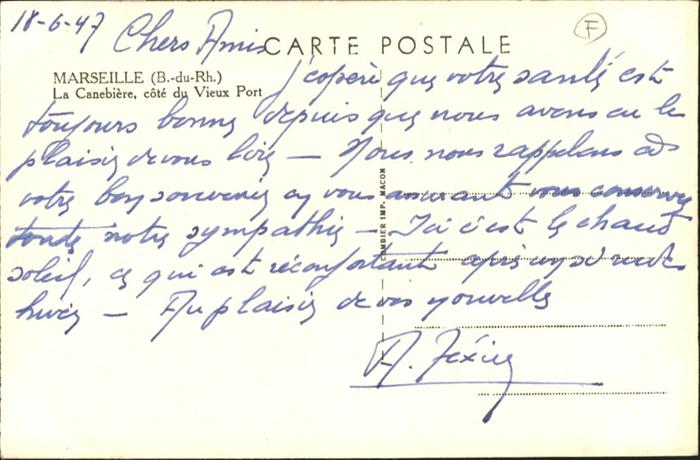 18-6-47 Chers Amis CARTE POSTALE F
MARSEILLE (B.-du-Rh.)
La Canebière, côté du Vieux Port
J'espère que votre santé est
toujours bonne depuis que nous avons eu le
plaisir de vous voir — Nous nous rappelons à
votre bon souvenir en vous assurant vous conserver
toute notre sympathie — Ici c'est le chaud
soleil, ce qui est réconfortant après un si rude
hiver — Au plaisir de vos nouvelles
A. Texier
COMBIER IMP. MACON